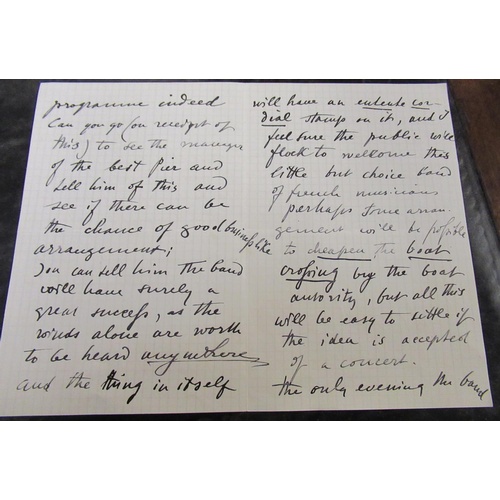 programme indeed
Can you go (on receipt of
this) to see the manager
of the best Pier and
tell him of this and
see if there can be
the chance of good business like
arrangement;
You can tell him the band
will have surely a
great success, as the
winds alone are worth
to be heard anywhere
and the thing in itself
will have an entente cor
dial stamp on it, and I
feel sure the public will
flock to welcome this
little but choice band
of french musicians
perhaps some arran-
gement will be possible
to cheapen the boat
crossing by the boat
autority, but all this
will be easy to settle if
the idea is accepted
of a concert.
the only evening the band